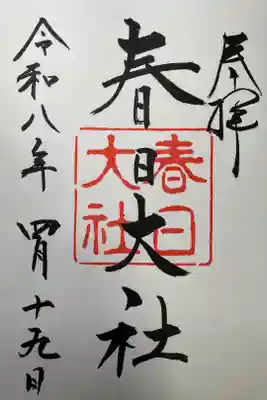 奉拝
春日大社
春日大社
令和八年 四月十九日